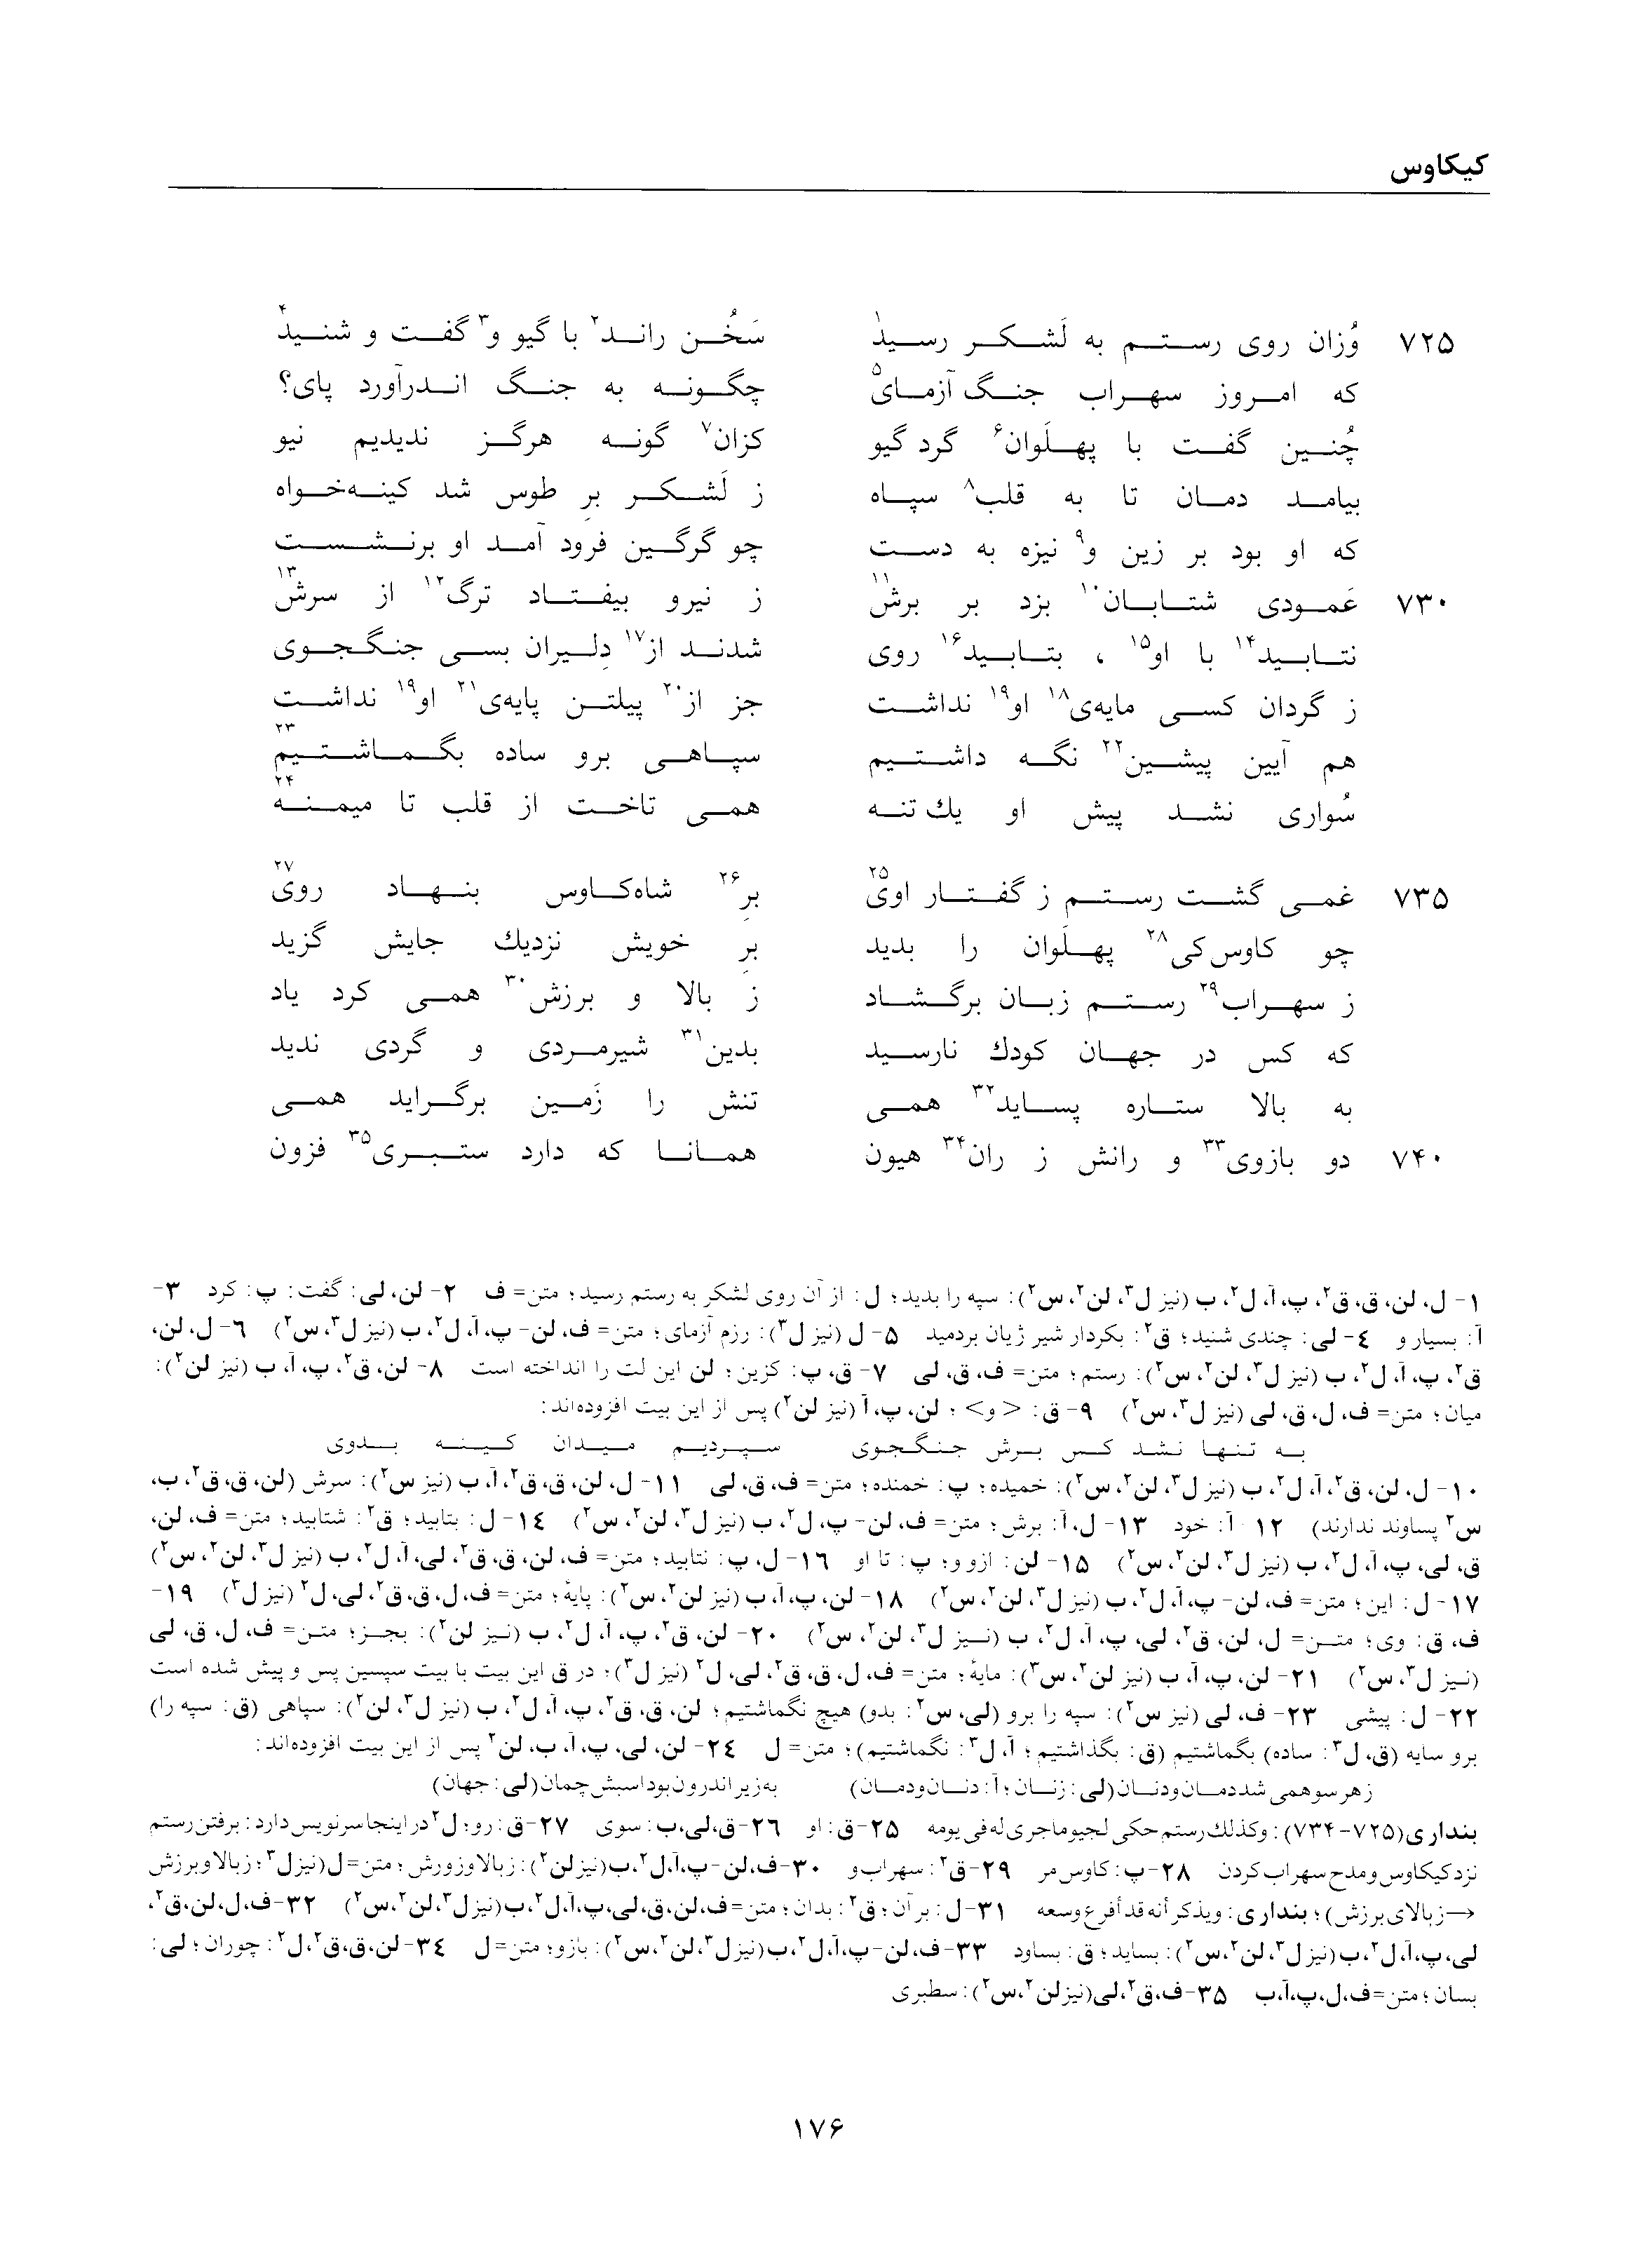 کیکاوس
۷۲۵ وُزان روی رستم به لَشکر رسید۱ سَخُن راند۲ با گیو و۳ گفت و شنید۴
که امروز سهراب جنگ آزمای۵ چگونه به جنگ اندرآورد پای؟
چُنین گفت با پهلَوان۶ گرد گیو کزان۷ گونه هرگز ندیدیم نیو
بیامد دمان تا به قلب۸ سپاه ز لَشکر برِ طوس شد کینه‌خواه
که او بود بر زین و۹ نیزه به دست چو گرگین فرود آمد او برنشست
۷۳۰ عَمودی شتابان۱۰ بزد بر برش۱۱ ز نیرو بیفتاد ترگ۱۲ از سرش۱۳
نتابید۱۴ با او۱۵، بتابید۱۶ روی شدند از۱۷ دِلیران بسی جنگجوی
ز گردان کسی مایه‌ی۱۸ او۱۹ نداشت جز از۲۰ پیلتن پایه‌ی۲۱ او۱۹ نداشت
هم آیین پیشین۲۲ نگه داشتیم سپاهی برو ساده بگماشتیم۲۳
سُواری نشد پیش او یك تنه همی تاخت از قلب تا میمنه۲۴
۷۳۵ غمی گشت رستم ز گفتار اوی۲۵ برِ۲۶ شاه‌کاوس بنهاد روی۲۷
چو کاوس‌کی۲۸ پهلَوان را بدید برِ خویش نزدیك جایش گزید
ز سهراب۲۹ رستم زبان برگشاد ز بالا و برزش۳۰ همی کرد یاد
که کس در جهان کودك نارسید بدین۳۱ شیرمردی و گردی ندید
به بالا ستاره پساید۳۲ همی تنش را زَمین برگراید همی
۷۴۰ دو بازوی۳۳ و رانش ز ران۳۴ هیون همانا که دارد ستبری۳۵ فزون
۱- ل، لن، ق، ق۲، پ، آ، ل۲، ب (نیز ل۳، لن۲، س۲): سپه را بدید؛ ل: از آن روی لشکر به رستم رسید؛ متن= ف ۲- لن، لی: گفت: پ: کرد ۳-
آ: بسیار و ٤- لی: چندی شنید؛ ق۲: بکردار شیر ژیان بردمید ۵- ل (نیز ل۳): رزم آزمای؛ متن= ف، لن- پ، آ، ل۲، ب (نیز ل۳، س۲) ۶- ل، لن،
ق۲، پ، آ، ل۲، ب (نیز ل۳، لن۲، س۲): رستم؛ متن= ف، ق، لی ۷- ق، پ: کزین؛ لن این لت را انداخته است ۸- لن، ق۲، پ، آ، ب (نیز لن۲):
میان؛ متن= ف، ل، ق، لی (نیز ل۳، س۲) ۹- ق: <و>؛ لن، پ، آ (نیز لن۲) پس از این بیت افزوده‌اند:
به تنها نشد کس برش جنگجوی سپردیم میدان کینه بدوی
۱۰- ل، لن، ق۲، آ، ل۲، ب (نیز ل۳، لن۲، س۲): خمیده؛ پ: خمنده؛ متن= ف، ق، لی ۱۱- ل، لن، ق، ق۲، آ، ب (نیز س۲): سرش (لن، ق، ق۲، ب،
س۲ پساوند ندارند) ۱۲ آ: خود ۱۳- ل، آ: برش؛ متن= ف، لن- پ، ل۲، ب (نیز ل۳، لن۲، س۲) ۱٤- ل: بتابید؛ ق۲: شتابید؛ متن= ف، لن،
ق، لی، پ، آ، ل۲، ب (نیز ل۳، لن۲، س۲) ۱۵- لن: ازو و؛ پ: تا او ۱۶- ل، پ: نتابید؛ متن= ف، لن، ق، ق۲، لی، آ، ل۲، ب (نیز ل۳، لن۲، س۲)
۱۷- ل: این؛ متن= ف، لن- پ، آ، ل۲، ب (نیز ل۳، لن۲، س۲) ۱۸- لن، پ، آ، ب (نیز لن۲، س۲): پایهٔ؛ متن= ف، ل، ق، ق۲، لی، ل۲ (نیز ل۳) ۱۹-
ف، ق: وی؛ متن= ل، لن، ق۲، لی، پ، آ، ل۲، ب (نیز ل۳، لن۲، س۲) ۲۰- لن، ق۲، پ، آ، ل۲، ب (نیز لن۲): بجز؛ متن= ف، ل، ق، لی
(نیز ل۳، س۲) ۲۱- لن، پ، آ، ب (نیز لن۲، س۳): مایهٔ؛ متن= ف، ل، ق، ق۲، لی، ل۲ (نیز ل۳)؛ در ق این بیت با بیت سپسین پس و پیش شده است
۲۲- ل: پیشی ۲۳- ف، لی (نیز س۲): سپه را برو (لی، س۲: بدو) هیچ نگماشتیم؛ لن، ق، ق۲، پ، آ، ل۲، ب (نیز ل۳، لن۲): سپاهی (ق: سپه را)
برو سایه (ق، ل۳: ساده) بگماشتیم (ق: بگذاشتیم؛ آ، ل۳: نگماشتیم)؛ متن= ل ۲٤- لن، لی، پ، آ، ب، لن۲ پس از این بیت افزوده‌اند:
ز هر سو همی شد دمان و دنان (لی: زنان؛ آ: دنان و دمان) به زیر اندرون بود اسبش چمان (لی: جهان)
بنداری (۷۲۵-۷۳۴): وکذلك رستم حکی لجیو ماجری له فی یومه ۲۵- ق: او ۲۶- ق، لی، ب: سوی ۲۷- ق: رو؛ ل۲ در اینجا سرنویس دارد: برفتن رستم
نزد کیکاوس و مدح سهراب کردن ۲۸- پ: کاوس مر ۲۹- ق۲: سهراب و ۳۰- ف، لن- پ، آ، ل۲، ب (نیز لن۲): ز بالا و زورش؛ متن= ل (نیز ل۳؛ ز بالا و برزش
→ ز بالای برزش)؛ بنداری: ویذکر أنه قد أفرع وسعه ۳۱- ل: بر آن؛ ق۲: بدان؛ متن= ف، لن، ق، لی، پ، آ، ل۲، ب (نیز ل۳، لن۲، س۲) ۳۲- ف، ل، لن، ق۲،
لی، پ، آ، ل۲، ب (نیز ل۳، لن۲، س۲): بساید؛ ق: بساود ۳۳- ف، لن- پ، آ، ل۲، ب (نیز ل۳، لن۲، س۲): بازو؛ متن= ل ۳٤- لن، ق، ق۲، ل۲: چوران؛ لی:
بسان؛ متن= ف، ل، پ، آ، ب ۳۵- ف، ق۲، لی (نیز لن۲، س۲): سطبری
۱۷۶